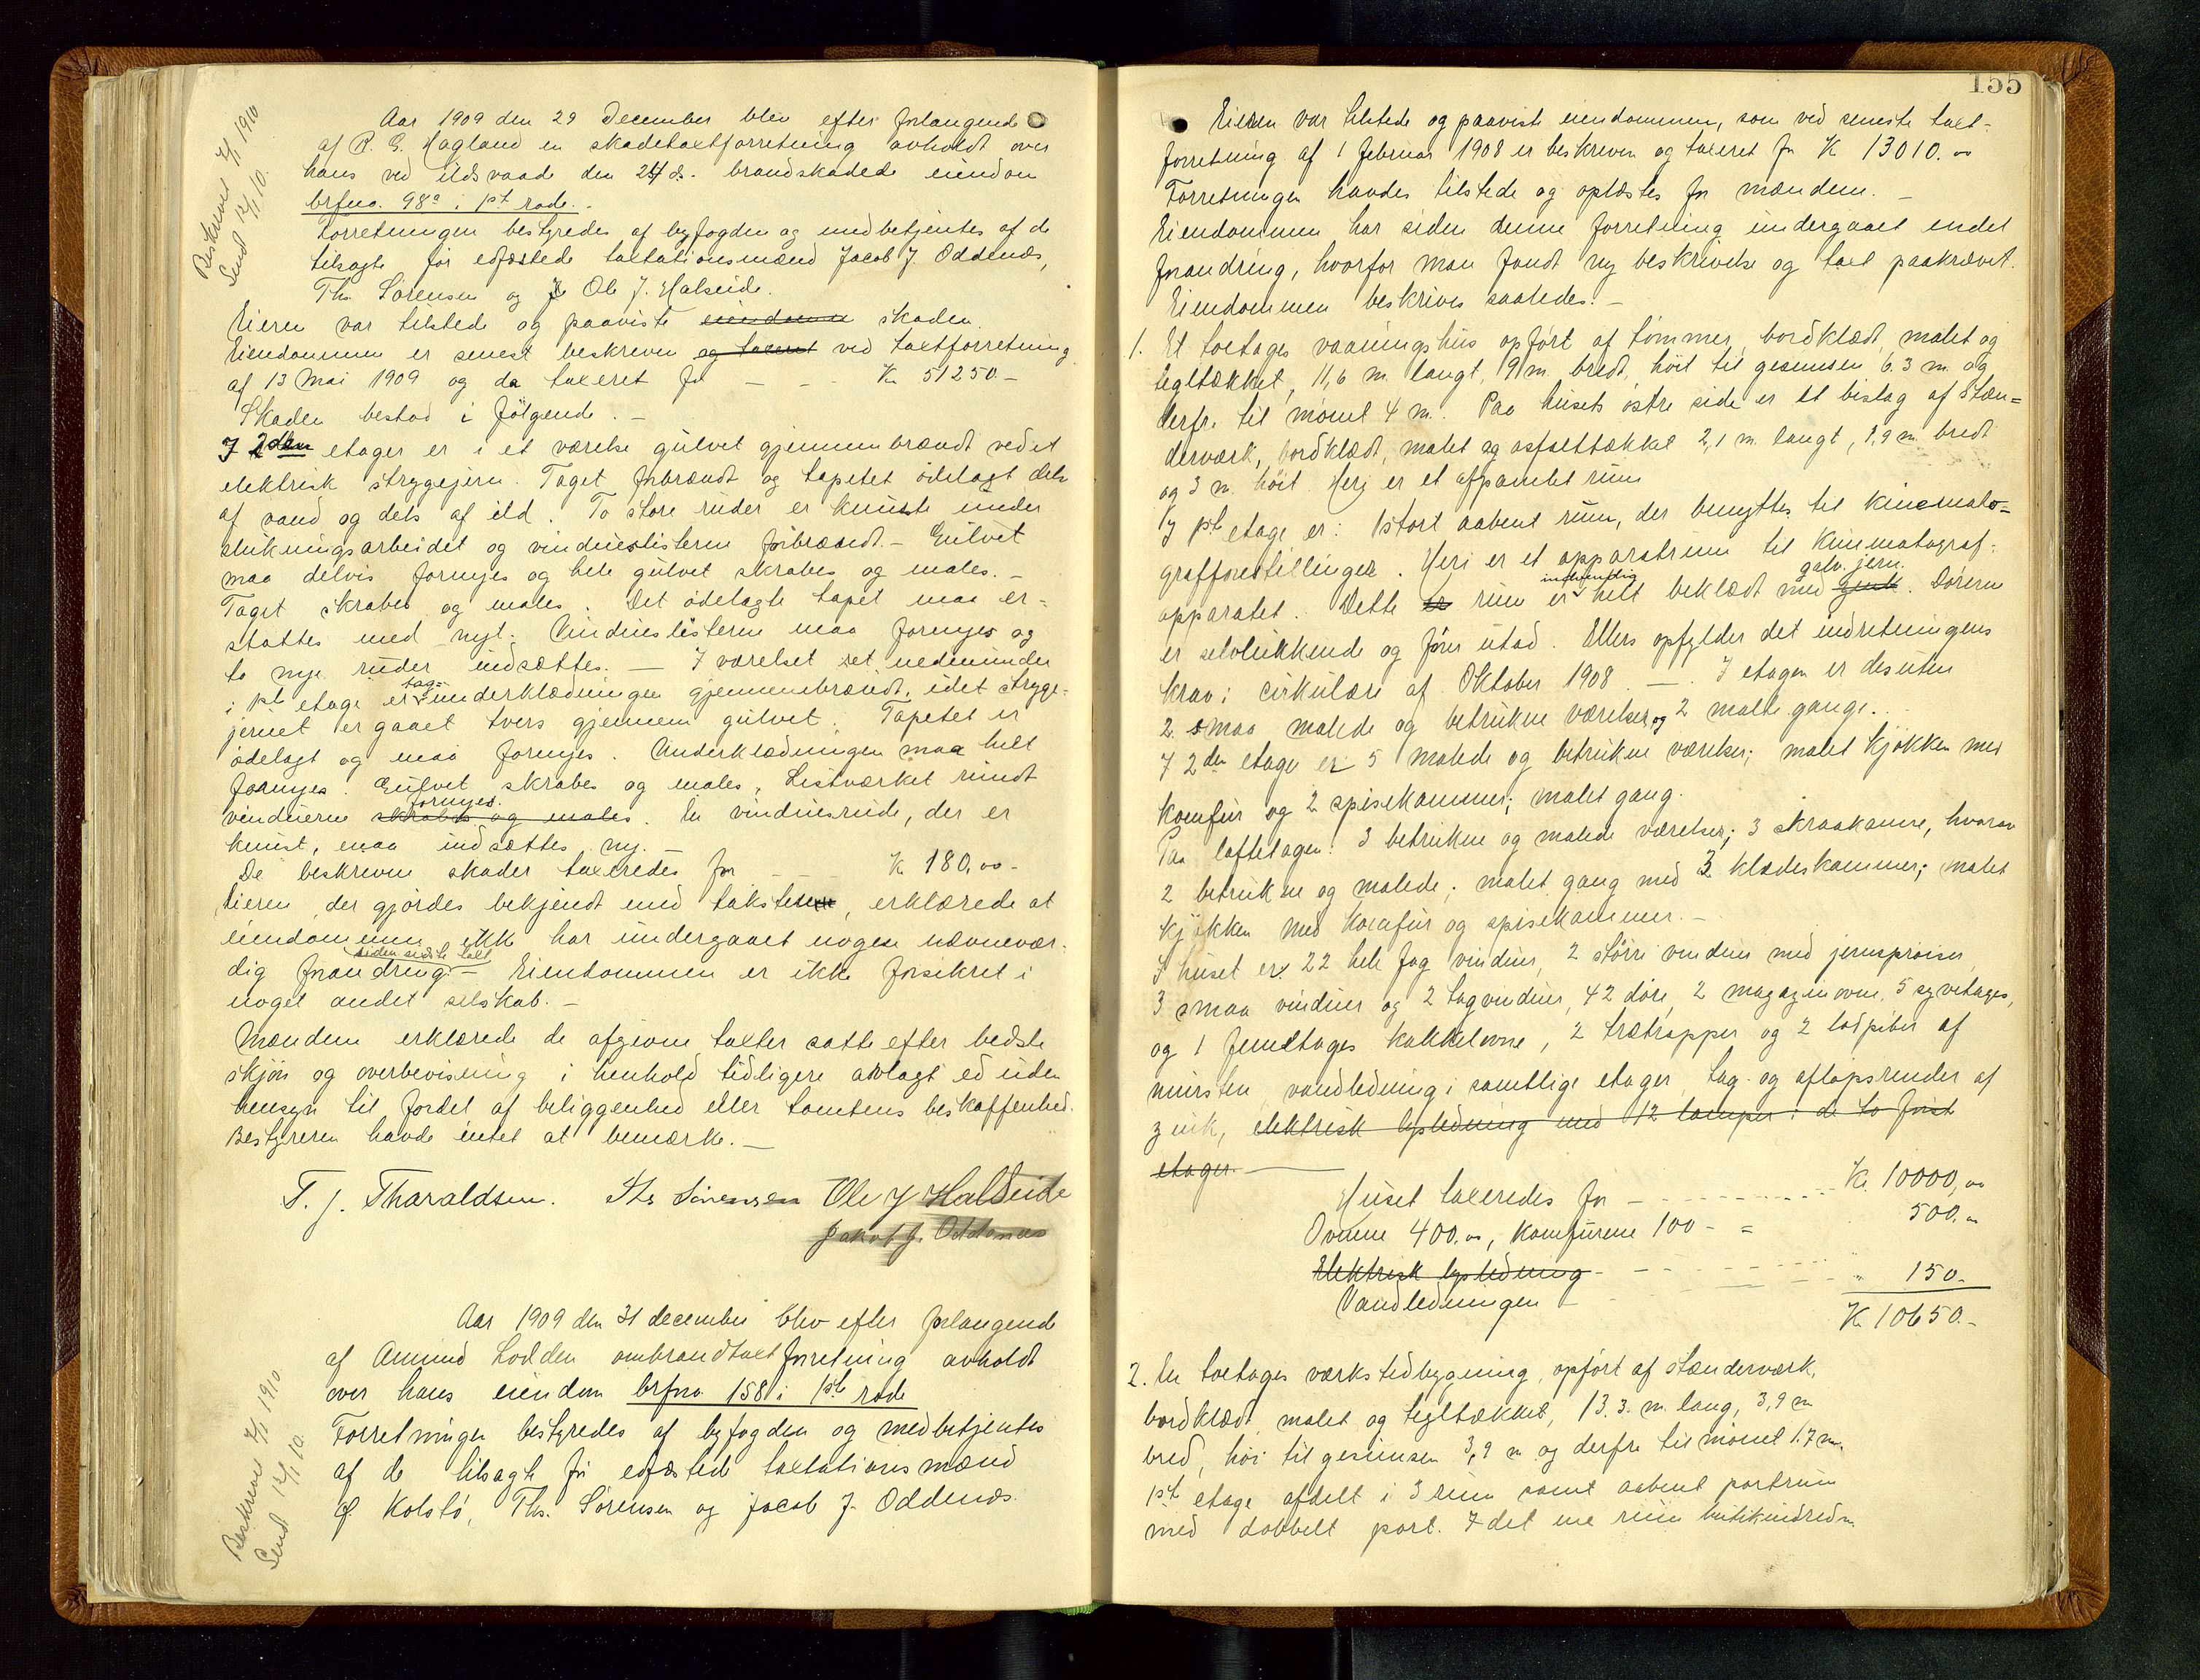 155
Beskrevet 7/1 1910
Send 12/1 10.
Aar 1909 den 29 December blev efter forlangende
af R. G. Hagland en skadetaxtforretning avholdt over
hans ved ildsvaade den 24 ds. brandskadede eiendom
brfno. 98a i 1st rode.
Forretningen bestyredes af byfogden og medbetjentes af de
tilsagte før edfæstede taxtationsmænd Jacob J Oddenæs,
Ths. Sørensen og Ole J. Halseide.
Eieren var tilstede og paaviste eiendommen skaden.
Eiendommen er senest beskreven og taxeret ved taxtforretning
af 13 Mai 1909 og da taxeret for — - - Kr 51250 —
Skaden bestod i følgende. —
I 2den etager er i et værelse gulvet gjennembrændt ved et
elektrisk strygejern. Taget forbrændt og tapetet ødelagt dels
af vand og dels af ild. To store ruder er knuste under
slukningsarbeidet og vindueslisterne forbrændt. — Gulvet
maa delvis fornyes og hele gulvet skrabes og males. —
Taget skrabes og males. Det ødelagte tapet maa er-
stattes med nyt. Vindueslisterne maa fornyes og
to nye ruder indsættes. — I værelset ret nedenunder
i 1ste etage er tag-underklædningen gjennembrændt, idet stryge-
jernet er gaaet tvers gjennem gulvet. Tapetet er
ødelagt og maa fornyes. Underklædningen maa helt
fornyes. Gulvet skrabes og males. Listværket rundt
vinduerne skrabes og males fornyes. En vinduesrude, der er
knust, maa indsættes ny. —
De beskrevne skader taxeredes for - Kr 180,00 -
Eieren, der gjordes bekjendt med taksten, erklærede at
eiendommen ikke har undergaaet nogen nævnevær-
dig forandring siden sidste taxt. — Eiendommen er ikke forsikret i
noget andet selskab. —
Mændene erklærede de afgivne taxter satte efter bedste
skjøn og overbevisning i henhold tidligere avlagt ed uden
hensyn til fordel af beliggenhed eller tomtens beskaffenhed.
Bestyreren havde intet at bemærke. —
T. J. Tharaldsen. Ths Sørensen Ole J Halseide
Jakob J. Oddenæs
Beskrevet 7/1 1910.
Send 12/1 10.
Aar 1909 den 31 december blev efter forlangende
af Amund Lodden ombrandtaxtforretning avholdt
over hans eiendom brfno 158 i 1ste rode
Forretningen bestyredes af byfogden og medbetjentes
af de tilsagte før edfæstede taxtationsmænd
O. Kolstø, Ths. Sørensen og Jacob J. Oddenæs.
Eieren var tilstede og paaviste eiendommen, som ved seneste taxt-
forretning af 1 februar 1908 er beskreven og taxeret for Kr 13010.00
Forretningen havdes tilstede og oplæstes for mændene. —
Eiendommen har siden denne forretning undergaaet endel
forandring, hvorfor man fandt ny beskrivelse og taxt paakrævet.
Eiendommen beskrives saaledes. —
1. Et toetages vaaningshus opført af tømmer, bordklædt, malet og
tegltækket, 11,6 m. langt, 9 m. bredt, høit til gesimsen 6.3 m. og
derfra til mønet 4 m. Paa husets østre side er et bislag af stæn=
derværk, bordklædt, malet og asfalttækket 2,1 m. langt, 1,9 m. bredt
og 3 m. høit. Heri er et afpanelet rum
I 1ste etage er: 1 stort aabent rum, der benyttes til kinemato=
grafforestillinger. Heri er et apparatrum til kinematograf-
apparatet. Dette er rum er indvendig helt beklædt med zink galv. jern. Dørene
er selvlukkende og fører utad. Ellers opfylder det indretningens
krav i cirkulære af Oktober 1908. — I etagen er desuten
2 smaa malede og betrukne værelser og 2 malte gange.
I 2den etage er 5 malede og betrukne værelser; malet kjøkken med
komfur og 2 spisekammer; malet gang.
Paa loftetagen: 3 betrukne og malede værelser; 3 skraakamre, hvorav
2 betrukne og malede; malet gang med 3 klædeskammer; malet
kjøkken med komfur og spisekammer. —
I huset er: 22 hele fag vinduer, 2 større vinduer med jernsproiser,
3 smaa vinduer og 2 tagvinduer, 42 døre, 2 magazinovne, 5 syvetages,
og 1 femetages kakkelovne, 2 trætrapper og 2 lodpiber af
mursten, vandledning i samtlige etager, tag- og aftapsrender af
zink, elektrisk lysledning med 12 lamper i de to først
etager. —
Huset taxeredes for — - - - - Kr. 10000,00
Ovnene 400.00, komfurene 100 - = 500.00
Elektrisk lysledning - - - - -
Vandledningen - " 150.-
Kr 10650.-
2. En toetages værkstedbygning, opført af stænderværk,
bordklædt, malet og tegltækket, 13.3. m. lang, 3,9 m
bred, høi til gesimsen 3,9 m og derfra til mønet 1.7 m.
1ste etage afdelt i 3 rum samt aabent portrum
med dobbelt port. I det ene rum butikindredn.